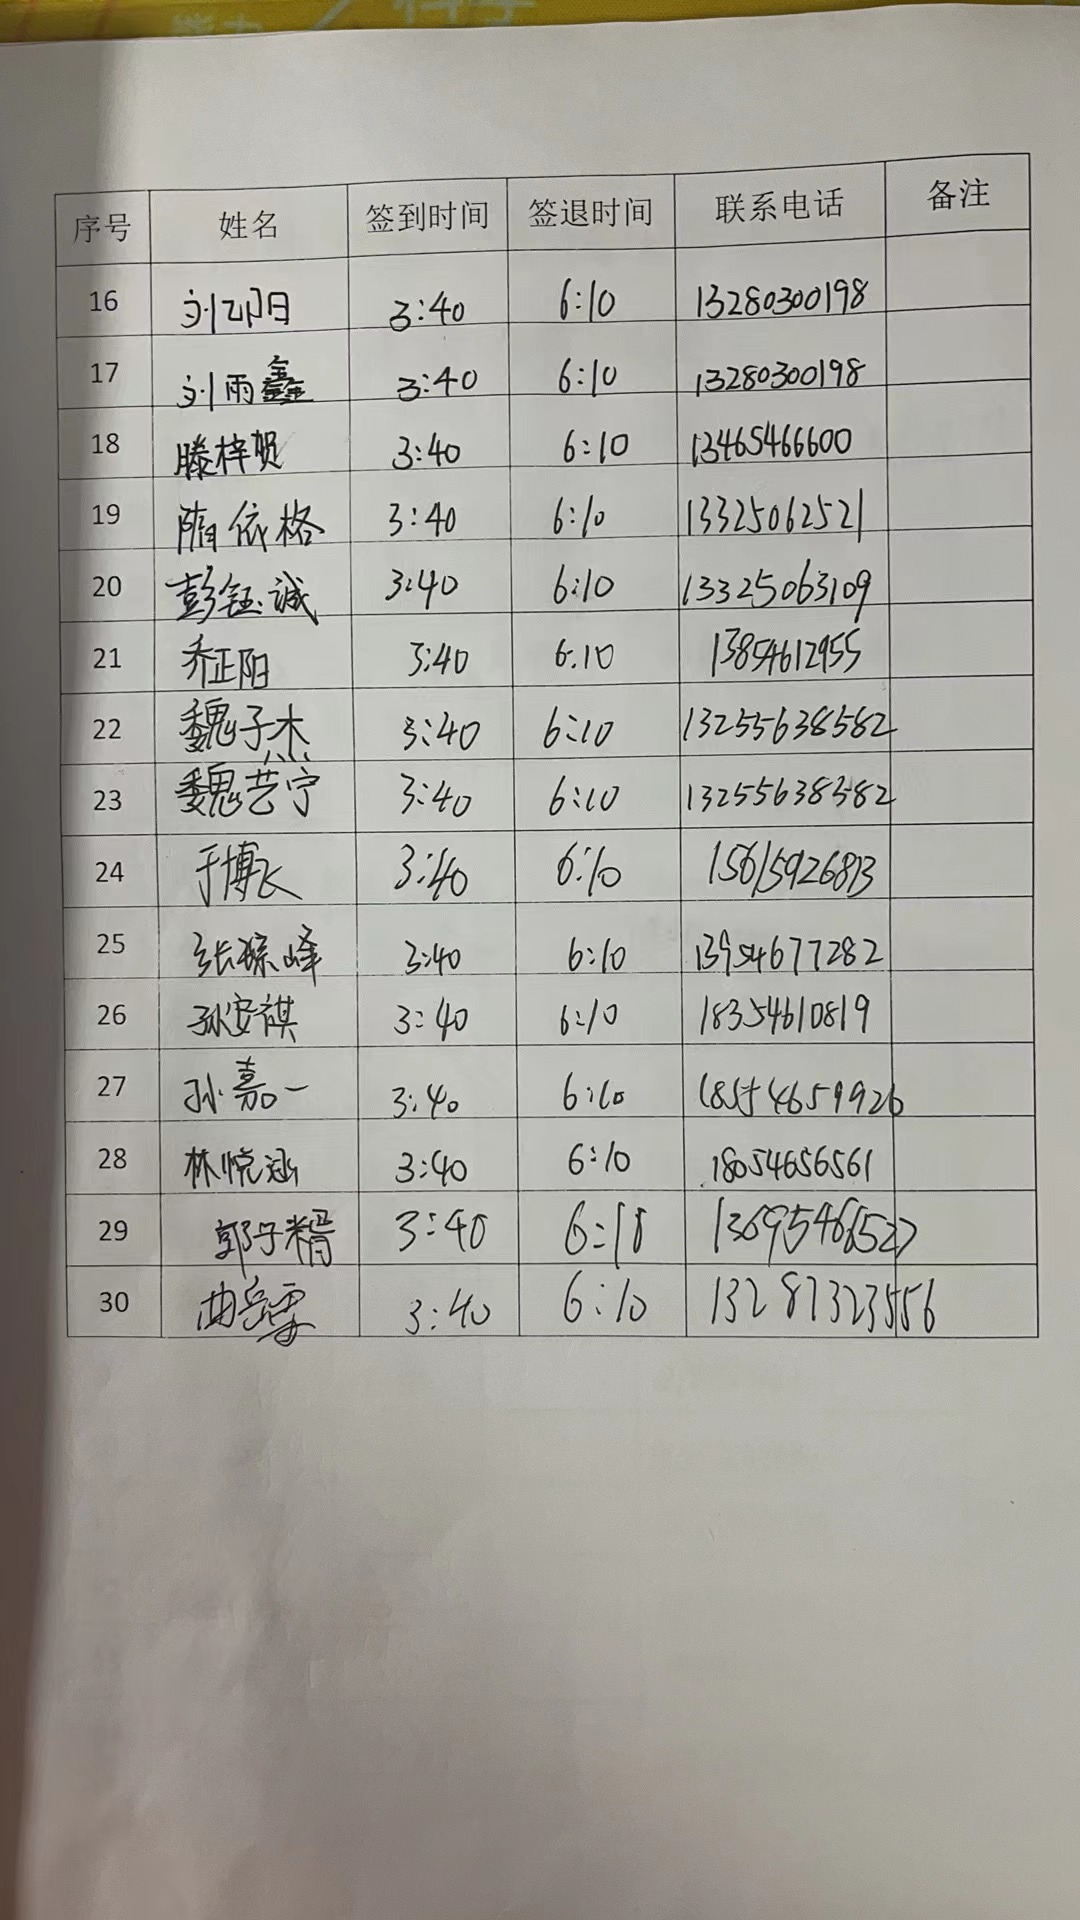 序号 姓名 签到时间 签退时间 联系电话 备注
16 刘邵阳 3:40 6:10 13280300198
17 刘雨鑫 3:40 6:10 13280300198
18 滕梓贺 3:40 6:10 13465466600
19 隋依格 3:40 6:10 13325062521
20 彭钰诚 3:40 6:10 13325063109
21 乔正阳 3:40 6:10 13854612955
22 魏子杰 3:40 6:10 13255638582
23 魏艺宁 3:40 6:10 13255638582
24 于博 3:40 6:10 15615926813
25 张琮峰 3:40 6:10 13954677282
26 孙安祺 3:40 6:10 18354610819
27 孙嘉一 3:40 6:10 18554659926
28 林悦涵 3:40 6:10 18054656561
29 郭子糈 3:40 6:10 13695466527
30 曲岳雷 3:40 6:10 13287323556